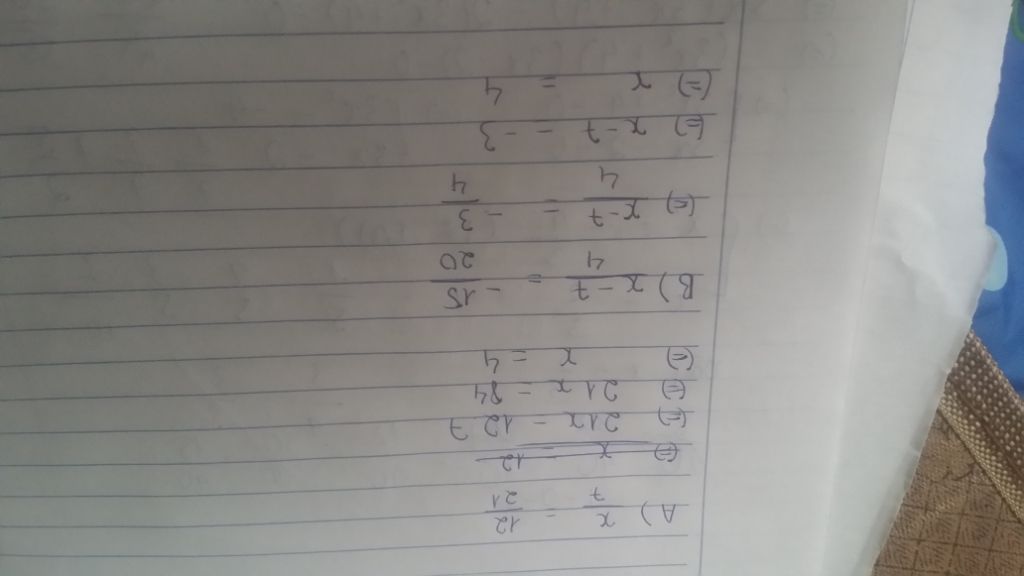 A) x/7 = 12/21
(=) x = 12
(=) 21x = 12 7
(=) 21x = 84
(=) x = 4
B) x-7/4 = -15/20
(=) x-7/4 = -3/4
(=) x-7 = -3
(=) x = 4